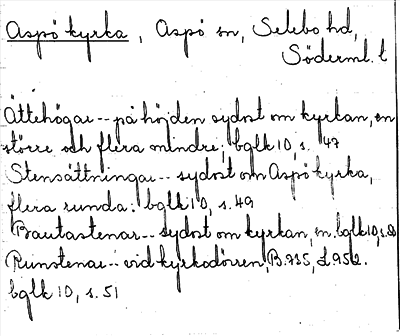 Aspö kyrka, Aspö sn, Selebo hd,
Söderml. l
Ättehögar -- på höjden sydost om kyrkan, en
större och flera mindre; bglk 10, s. 47
Stensättningar -- sydost om Aspö kyrka,
flera runda: bglk 10, s. 49
Bautastenar -- sydost om kyrkan, en. bglk 10, s.
Runstenar -- vid kyrkodörren, B. 735, L 952.
bglk 10, s. 51